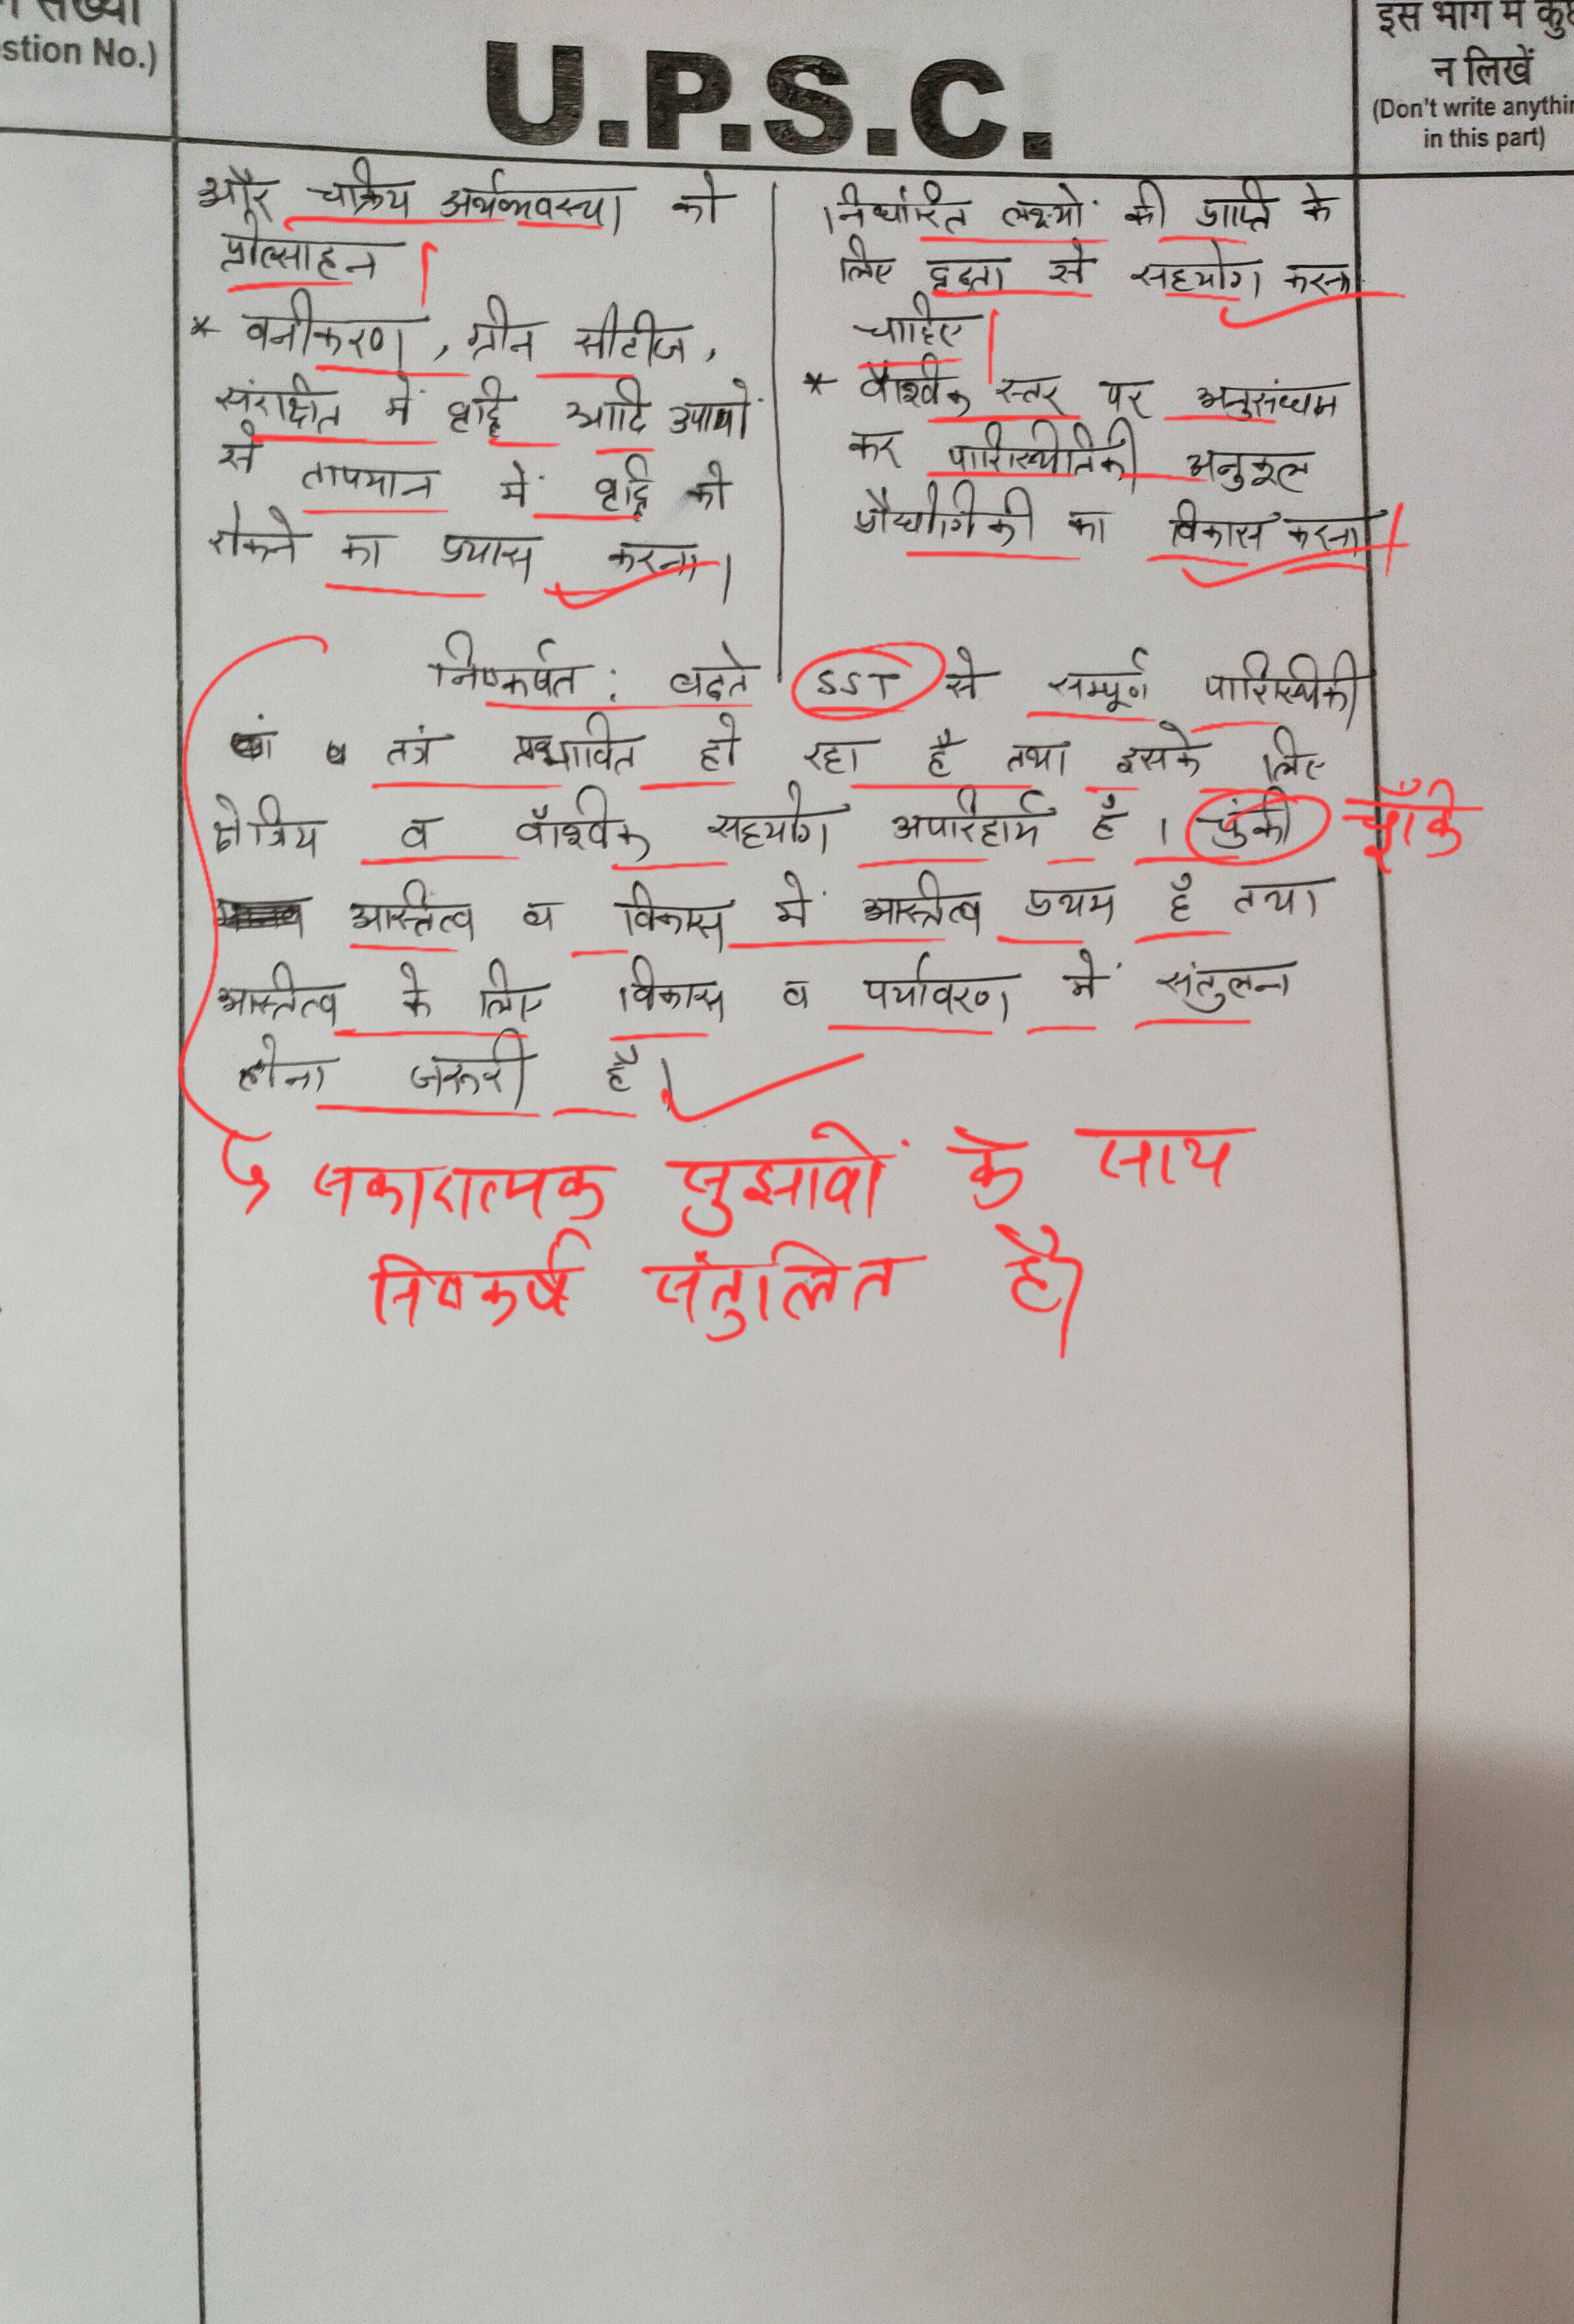 संख्या
stion No.)
U.P.S.C.
इस भाग में कुछ
न लिखें
(Don't write anythin
in this part)
और चक्रिय अर्थव्यवस्था को
प्रोत्साहन
* वनीकरण, ग्रीन सीटीज,
संरक्षित में वृद्धि आदि उपायों
से तापमान में वृद्धि को
रोकने का प्रयास करना।
निर्धारित लक्ष्यों की प्राप्ति के
लिए दृढ़ता से सहयोग करना
चाहिए
* वैश्वीक स्तर पर अनुसंधान
कर पारिस्थीतिकी अनुकूल
प्रौद्योगिकी का विकास करना
निष्कर्षत: बढ़ते SST से सम्पूर्ण पारिस्थिकी
तंत्रं प्रभावित हो रहा है तथा इसके लिए
क्षेत्रिय व वैश्वीक सहयोग अपरिहार्य है। चुंकी चूँकि
अस्तित्व व विकास में अस्तित्व प्रथम है तथा
अस्तित्व के लिए विकास व पर्यावरण में संतुलन
होना जरूरी है।
सकारात्मक सुझावों के साथ
निष्कर्ष संतुलित है।